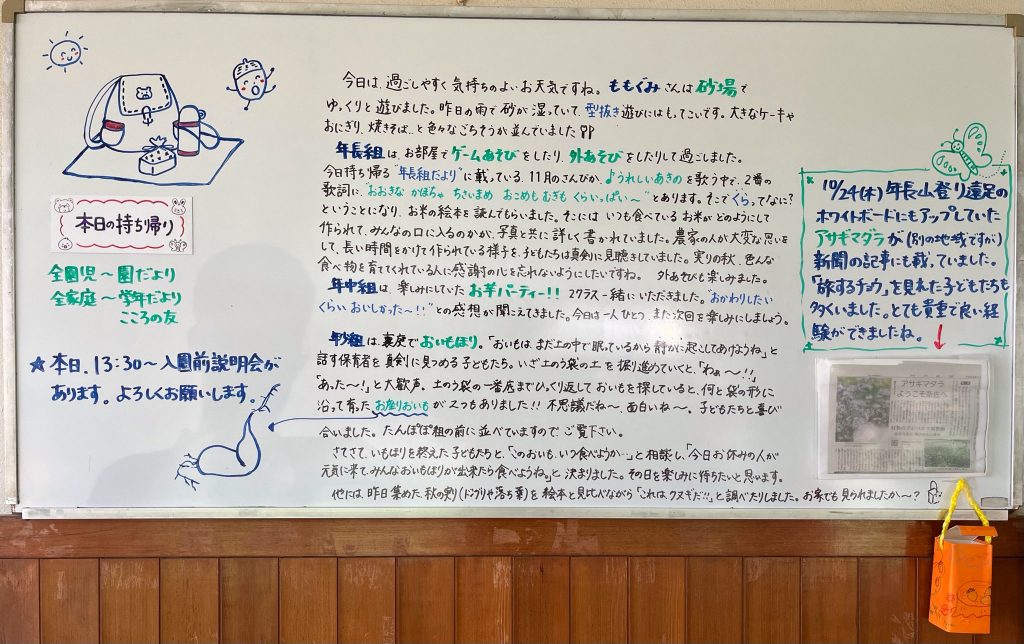 本日の持ち帰り
全園児～園だより
全家庭～学年だより
こころの友
★本日、13:30～入園前説明会が
あります。よろしくお願いします。
今日は、過ごしやすく気持ちのよいお天気ですね。ももぐみさんは砂場で
ゆっくりと遊びました。昨日の雨で砂が湿っていて、型抜き遊びにはもってこいです。大きなケーキや
おにぎり、焼きそば…と色々なごちそうが並んでいました
年長組は、お部屋でゲームあそびをしたり、外あそびをしたりして過ごしました。
今日持ち帰る“年長組だより”に載っている、11月のさんびか、♪うれしいあきのを歌う中で、2番の
歌詞に、“おおきな かぼちゃ ちいさいまめ おこめも むぎも くらいっぱい～”とあります。そこで「くら」ってなに？
ということになり、お米の絵本を読んでもらいました。そこには いつも食べている お米が どのようにして
作られて、みんなの口に入るのかが、写真と共に詳しく書かれていました。農家の人が大変な思いを
して、長い時間をかけて作られている様子を、子どもたちは真剣に見聴きしていました。実りの秋、色んな
食べ物を育ててくれている人に感謝の心を忘れないようにしたいですね。 外あそびも楽しみました。
年中組は、楽しみにしていたお芋パーティー!! 2クラス一緒にいただきました。“おかわりしたい
くらい おいしかった～!!”との感想が聞こえてきました。今日は一人ひとつ、また次回を楽しみにしましょう。
年少組は、裏庭でおいもほり。「おいもは、まだ土の中で眠っているから静かに起こしてあげようね」と
話す保育者を真剣に見つめる子どもたち。いざ土のう袋の土を掘り進めていくと、「わぁ～!!」
「あった～！」と大歓声。土のう袋の一番底までひっくり返しておいもを探していると、何と袋の形に
沿って育ったお座りおいもが2つもありました!! 不思議だね～、面白いね～。子どもたちと喜び
合いました。たんぽぽ組の前に並べていますので、ご覧下さい。
さてさて、いもほりを終えた子どもたちと、「このおいも、いつ食べようか…」と相談し、「今日お休みの人が
元気に来て、みんなおいもほりが出来たら食べようね」と決まりました。その日を楽しみに待ちたいと思います。
他には、昨日集めた秋の実り(ドングリや落ち葉)を絵本と見比べながら「これは、クヌギだ!!」と調べたりしました。お家でも見られましたか～？
10/24(木)年長山登り遠足の
ホワイトボードにもアップしていた
アサギマダラが(別の地域ですが)
新聞の記事にも載っていました。
「旅するチョウ」を見れた子どもたちも
多くいました。とても貴重で良い経
験ができましたね。
アサギマダラ
ようこそ